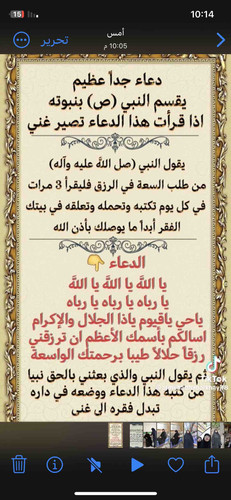 10:14
15
أمس
10:05 م
تحرير
دعاء جداً عظيم
يقسم النبي (ص) بنبوته
اذا قرأت هذا الدعاء تصير غني
يقول النبي (صل الله عليه وآله)
من طلب السعة في الرزق فليقرأ 3 مرات
في كل يوم تكتبه وتحمله وتعلقه في بيتك
الفقر أبداً ما يوصلك بأذن الله
الدعاء 👇
يا اللّٰه يا اللّٰه يا اللّٰه
يا رباه يا رباه يا رباه
ياحي ياقيوم ياذا الجلال والإكرام
اسالكم بأسمك الأعظم ان ترزقني
رزقاً حلالاً طيبا برحمتك الواسعة
ثم يقول النبي والذي بعثني بالحق نبيا
من كتبه هذا الدعاء ووضعه في داره
تبدل فقره الى غنى
TikTok